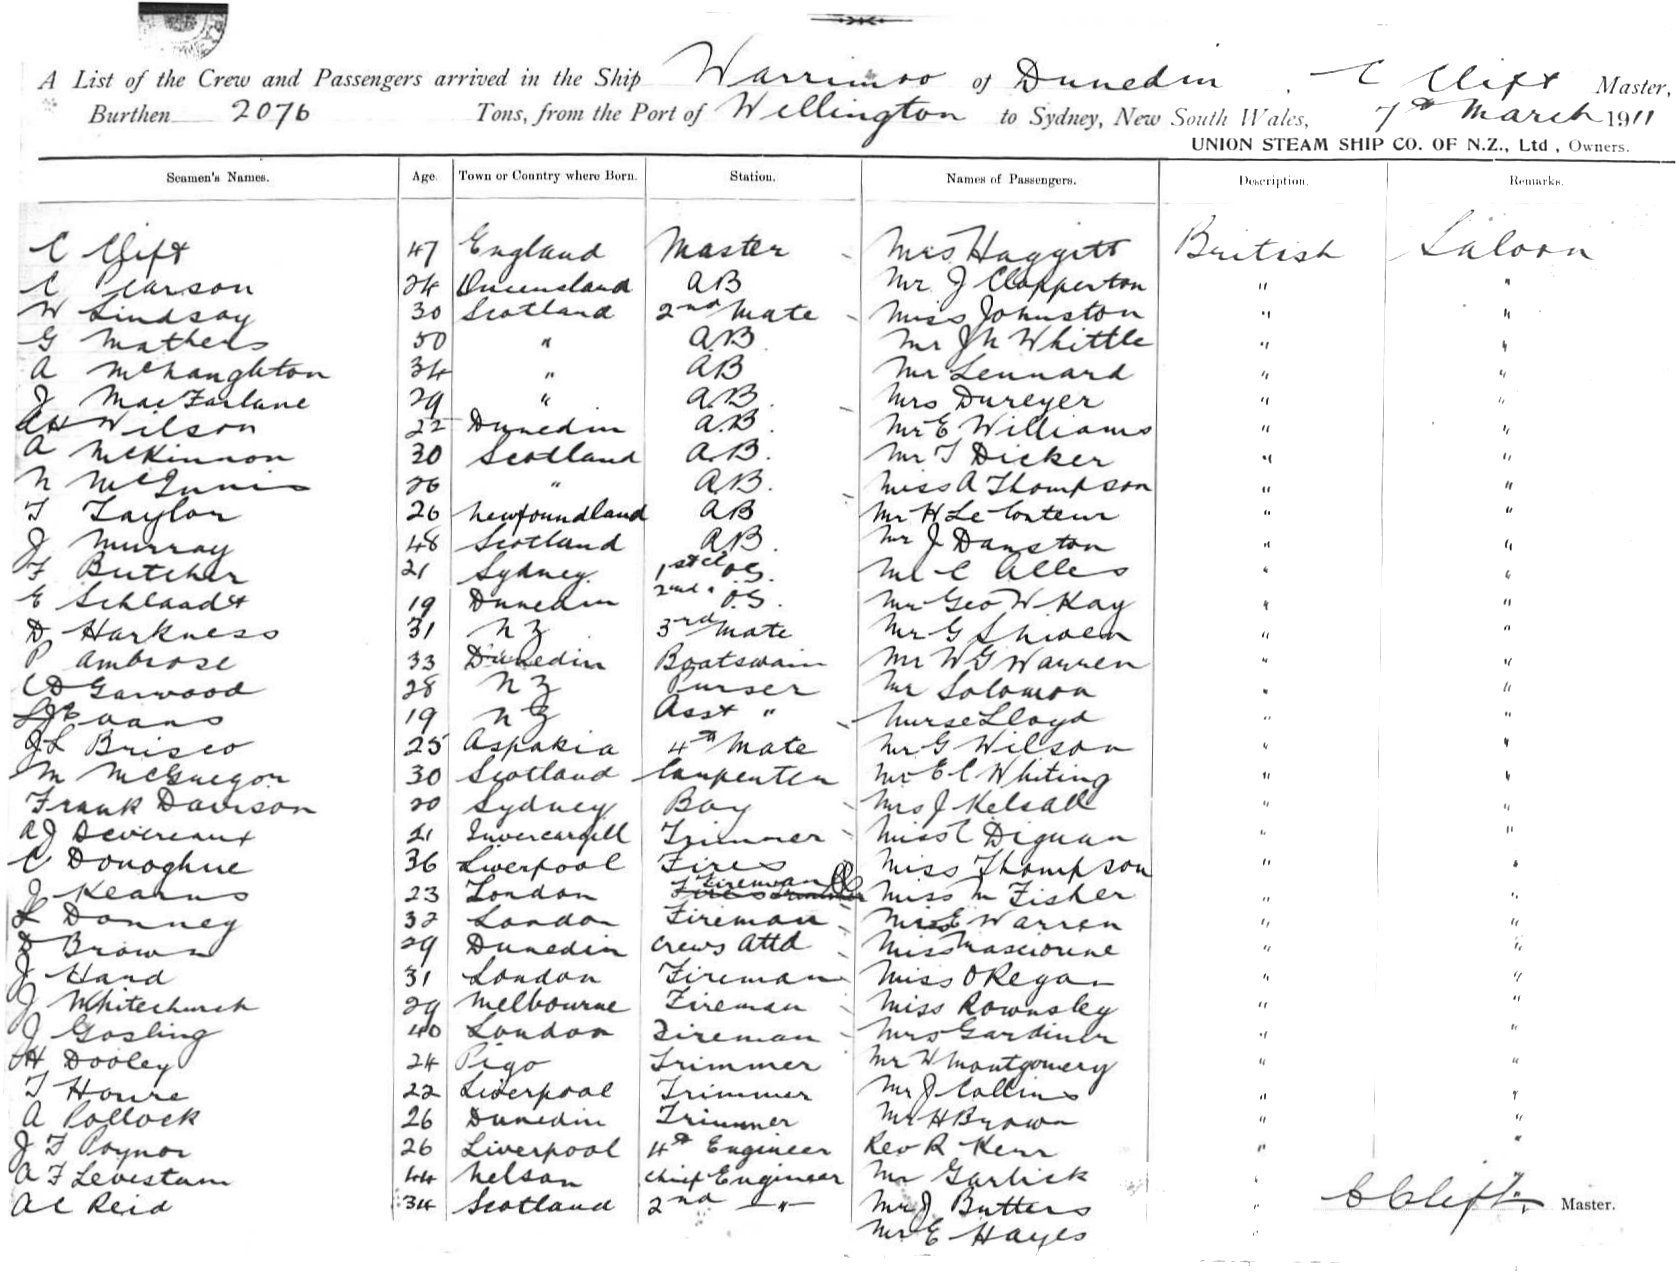 A List of the Crew and Passengers arrived in the Ship Warrimoo of Dunedin, C Clift Master,
Burthen 2076 Tons, from the Port of Wellington to Sydney, New South Wales, 7th March 1911
UNION STEAM SHIP CO. OF N.Z., Ltd, Owners.
Seamen's Names. Age. Town or Country where Born. Station. Names of Passengers. Description. Remarks.
C Clift 47 England Master Mrs Haggitt British Saloon
C Pearson 24 Queensland AB Mr J Clapperton " "
W Lindsay 30 Scotland 2nd Mate Miss Johnston " "
G Mathers 50 " A.B Mr J N Whittle " "
A McNaughton 34 " AB Mr Lennard " "
J MacFarlane 29 " A.B. Mrs Dureyer " "
Wilson 22 Dunedin A.B. Mr E Williams " "
A McKinnon 30 Scotland A.B. Mr T Dicker " "
N McInnis 26 " A.B. Miss A Thompson " "
T Taylor 26 Newfoundland AB Mr H Le Conteur " "
J Murray 48 Scotland A.B. Mr J Danston " "
F Butcher 21 Sydney 1st cl O.S. Mr C Alles " "
E Schlaadt 19 Dunedin 2nd " O.S. Mr Geo W Kay " "
D Harkness 31 NZ 3rd Mate Mr G " "
P Ambrose 33 Dunedin Boatswain Mr W G Warren " "
C D Garwood 28 NZ Purser Mr Solomon " "
Evans 19 NZ Asst " Nurse Lloyd " "
J L Brisco 25 Aspakia 4th Mate Mr G Wilson " "
M McGregor 30 Scotland Carpenter Mr E C Whiting " "
Frank Davison 20 Sydney Boy Mrs J Kelsall " "
A J Devereaux 21 Invercargill Trimmer Miss C Dignan " "
C Donoghue 36 Liverpool Fires Miss Thompson " "
J Kearns 23 London Fireman Miss M Fisher " "
L Donney 32 London Fireman E Warren " "
D Brown 29 Dunedin Crews Attd Miss " "
J Hand 31 London Fireman Miss O'Regan " "
J Whitechurch 29 Melbourne Fireman Miss Rownsley " "
J Gosling 40 London Fireman Mrs Gardiner " "
H Dooley 24 Pigo Trimmer Mr W Montgomery " "
T Houre 22 Liverpool Trimmer Mr J Collins " "
A Pollock 26 Dunedin Trimmer Mr H Brown " "
J F Poynor 26 Liverpool 4th Engineer Rev R Kerr " "
A F Levestam 44 Nelson Chief Engineer Mr Garlick "
A C Reid 34 Scotland 2nd " Mr J Butters " C Clift. Master.
Mr E Hayes "